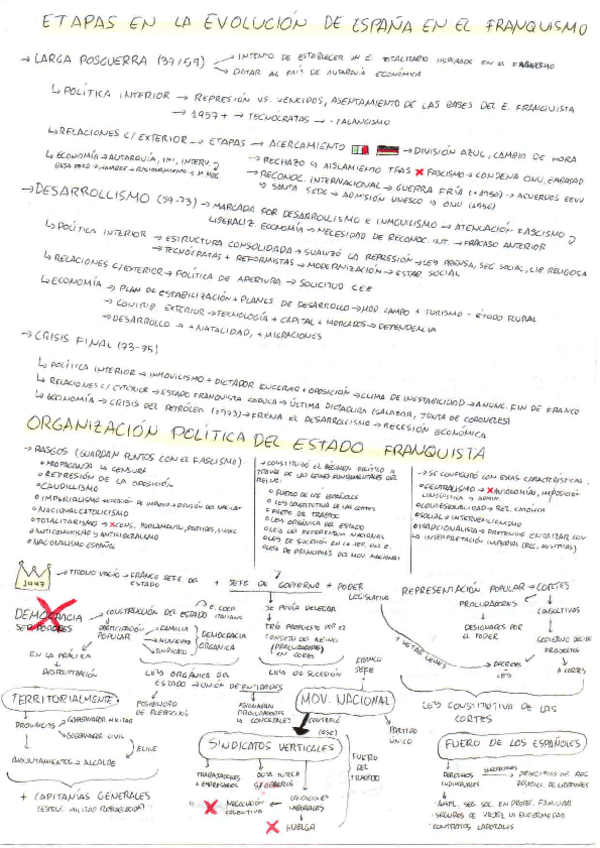 ETAPAS EN LA EVOLUCIÓN DE ESPAÑA EN EL FRANQUISMO
→ LARGA POSGUERRA (39/59) → INTENTO DE ESTABLECER UN E. TOTALITARIO INSPIRADO EN EL FASCISMO
→ DOTAR AL PAÍS DE AUTARQUÍA ECONÓMICA
↳ POLÍTICA INTERIOR → REPRESIÓN VS. VENCIDOS, ASENTAMIENTO DE LAS BASES DEL E. FRANQUISTA
→ 1957+ → TECNÓCRATAS → -FALANGISMO
↳ RELACIONES C/EXTERIOR → ETAPAS → ACERCAMIENTO → DIVISIÓN AZUL, CAMBIO DE HORA
→ RECHAZO Y AISLAMIENTO TRAS X FASCISMO → CONDENA ONU, EMBAJAD
→ RECONOC. INTERNACIONAL → GUERRA FRÍA (+1950) → ACUERDOS EEUU
Y SANTA SEDE → ADMISIÓN UNESCO Y ONU
↳ ECONOMÍA → AUTARQUÍA, INI, INTERV
→ HAMBRE → RACIONAMIENTO → M. NEG.
→ DESARROLLISMO (59-73) → MARCADA POR DESARROLLISMO E INMOVILISMO → ATENUACIÓN FASCISMO
LIBERALIZ. ECONOMÍA → NECESIDAD DE RECONOC. INT. → FRACASO ANTERIOR
↳ POLÍTICA INTERIOR → ESTRUCTURA CONSOLIDADA → SUAVIZÓ LA REPRESIÓN → LEY PRENSA, SEG SOCIAL, LIB RELIGIOSA
→ TECNÓCRATAS + REFORMISTAS → MODERNIZACIÓN → ESTAB. SOCIAL
↳ RELACIONES C/EXTERIOR → POLÍTICA DE APERTURA → SOLICITUD CEE
↳ ECONOMÍA → PLAN DE ESTABILIZACIÓN + PLANES DE DESARROLLO → MOD. CAMPO + TURISMO - ÉXODO RURAL
→ CONTRIB EXTERIOR → TECNOLOGÍA + CAPITAL + MERCADOS → DEPENDENCIA
→ DESARROLLO → + NATALIDAD, + MIGRACIONES
→ CRISIS FINAL (73-75)
↳ POLÍTICA INTERIOR → INMOVILISMO + DICTADOR ENFERMO + OPOSICIÓN → CLIMA DE INESTABILIDAD → ANUNC. FIN DE FRANCO
↳ RELACIONES C/EXTERIOR → ESTADO FRANQUISTA CADUCA → ÚLTIMA DICTADURA (SALAZAR, JUNTA DE CORONELES)
↳ ECONOMÍA → CRISIS DEL PETRÓLEO (1973) → FRENA EL DESARROLLO → RECESIÓN ECONÓMICA
ORGANIZACIÓN POLÍTICA DEL ESTADO FRANQUISTA
→ RASGOS (GUARDAN PUNTOS CON EL FASCISMO)
• PROPAGANDA Y CENSURA
• REPRESIÓN DE LA OPOSICIÓN
• CAUDILLISMO
• IMPERIALISMO
• NACIONALCATOLICISMO
• TOTALITARISMO → X CONS, PARLAMENTO, PARTIDOS, SINDIC
• ANTICOMUNISMO Y ANTILIBERALISMO
• NACIONALISMO ESPAÑOL
→ CONSTITUYÓ EL RÉGIMEN POLÍTICO A
TRAVÉS DE LAS LEYES FUNDAMENTALES DEL
REINO:
• FUERO DE LOS ESPAÑOLES
• LEY CONSTITUTIVA DE LAS CORTES
• FUERO DEL TRABAJO
• LEY ORGÁNICA DEL ESTADO
• LEY DEL REFERENDUM NACIONAL
• LEY DE SUCESIÓN EN LA JEF. DEL E.
• LEY DE PRINCIPIOS DEL MOV. NACIONAL
→ SE CONFIGURÓ CON ESAS CARACTERÍSTICAS:
• CENTRALISMO → X AUTONOMÍAS, IMPOSICIÓN
LINGÜÍSTICA Y ADMIN.
• CONFESIONALIDAD → REL. CATÓLICA
• SOCIAL E INTERVENCIONISMO
• TRADICIONALISTA → PRETENDE ENLAZAR CON
LA INTERPRETACIÓN IMPERIAL (RRC, AUSTRIAS)
1947 → TRONO VACÍO → FRANCO JEFE DEL ESTADO + JEFE DE GOBIERNO + PODER LEGISLATIVA
REPRESENTACIÓN POPULAR → CORTES
PROCURADORES
CONSULTIVAS
DESIGNADOS POR EL PODER
GOBIERNO DECIDE PROYECTOS
A CORTES
+ VETAR LEYES
DECRETOS LEY
DEMOCRACIA
SEP. PODERES
→ CONSTRUCCIÓN DEL ESTADO
→ PARTICIPACIÓN POPULAR
→ FAMILIA
→ MUNICIPIO
→ SINDICATO
DEMOCRACIA ORGÁNICA
SE PODÍA DELEGAR
TRÍO PROPUESTO POR EL
CONSEJO DEL REINO
(PROCURADORES EN CORTES)
EN LA PRÁCTICA
LEY ORGÁNICA DEL ESTADO → UNIÓN DE ENTIDADES
LEY DE SUCESIÓN
FRANCO JEFE
TERRITORIALMENTE
PROVINCIAS → GOBERNADOR MILITAR
→ GOBERNADOR CIVIL
ELIGE
AYUNTAMIENTOS → ALCALDE
+ CAPITANÍAS GENERALES
POSIBILIDAD DE PLEBISCITOS
ASIGNABAN PROCURADORES Y CONCEJALES
MOV. NACIONAL
CONTROLÓ (OSE)
PARTIDO ÚNICO
LEY CONSTITUTIVA DE LAS CORTES
SINDICATOS VERTICALES
TRABAJADORES + EMPRESARIOS
X NEGOCIACIÓN COLECTIVA
CONDICIONES LABORALES
X HUELGA
FUERO DEL TRABAJO
FUERO DE LOS ESPAÑOLES
DERECHOS INDIVIDUALES
AMPL. SEG. SOC. EN PROTEC. FAMILIAR
SEGUROS DE VEJEZ Y ENFERMEDAD
CONTRATOS LABORALES